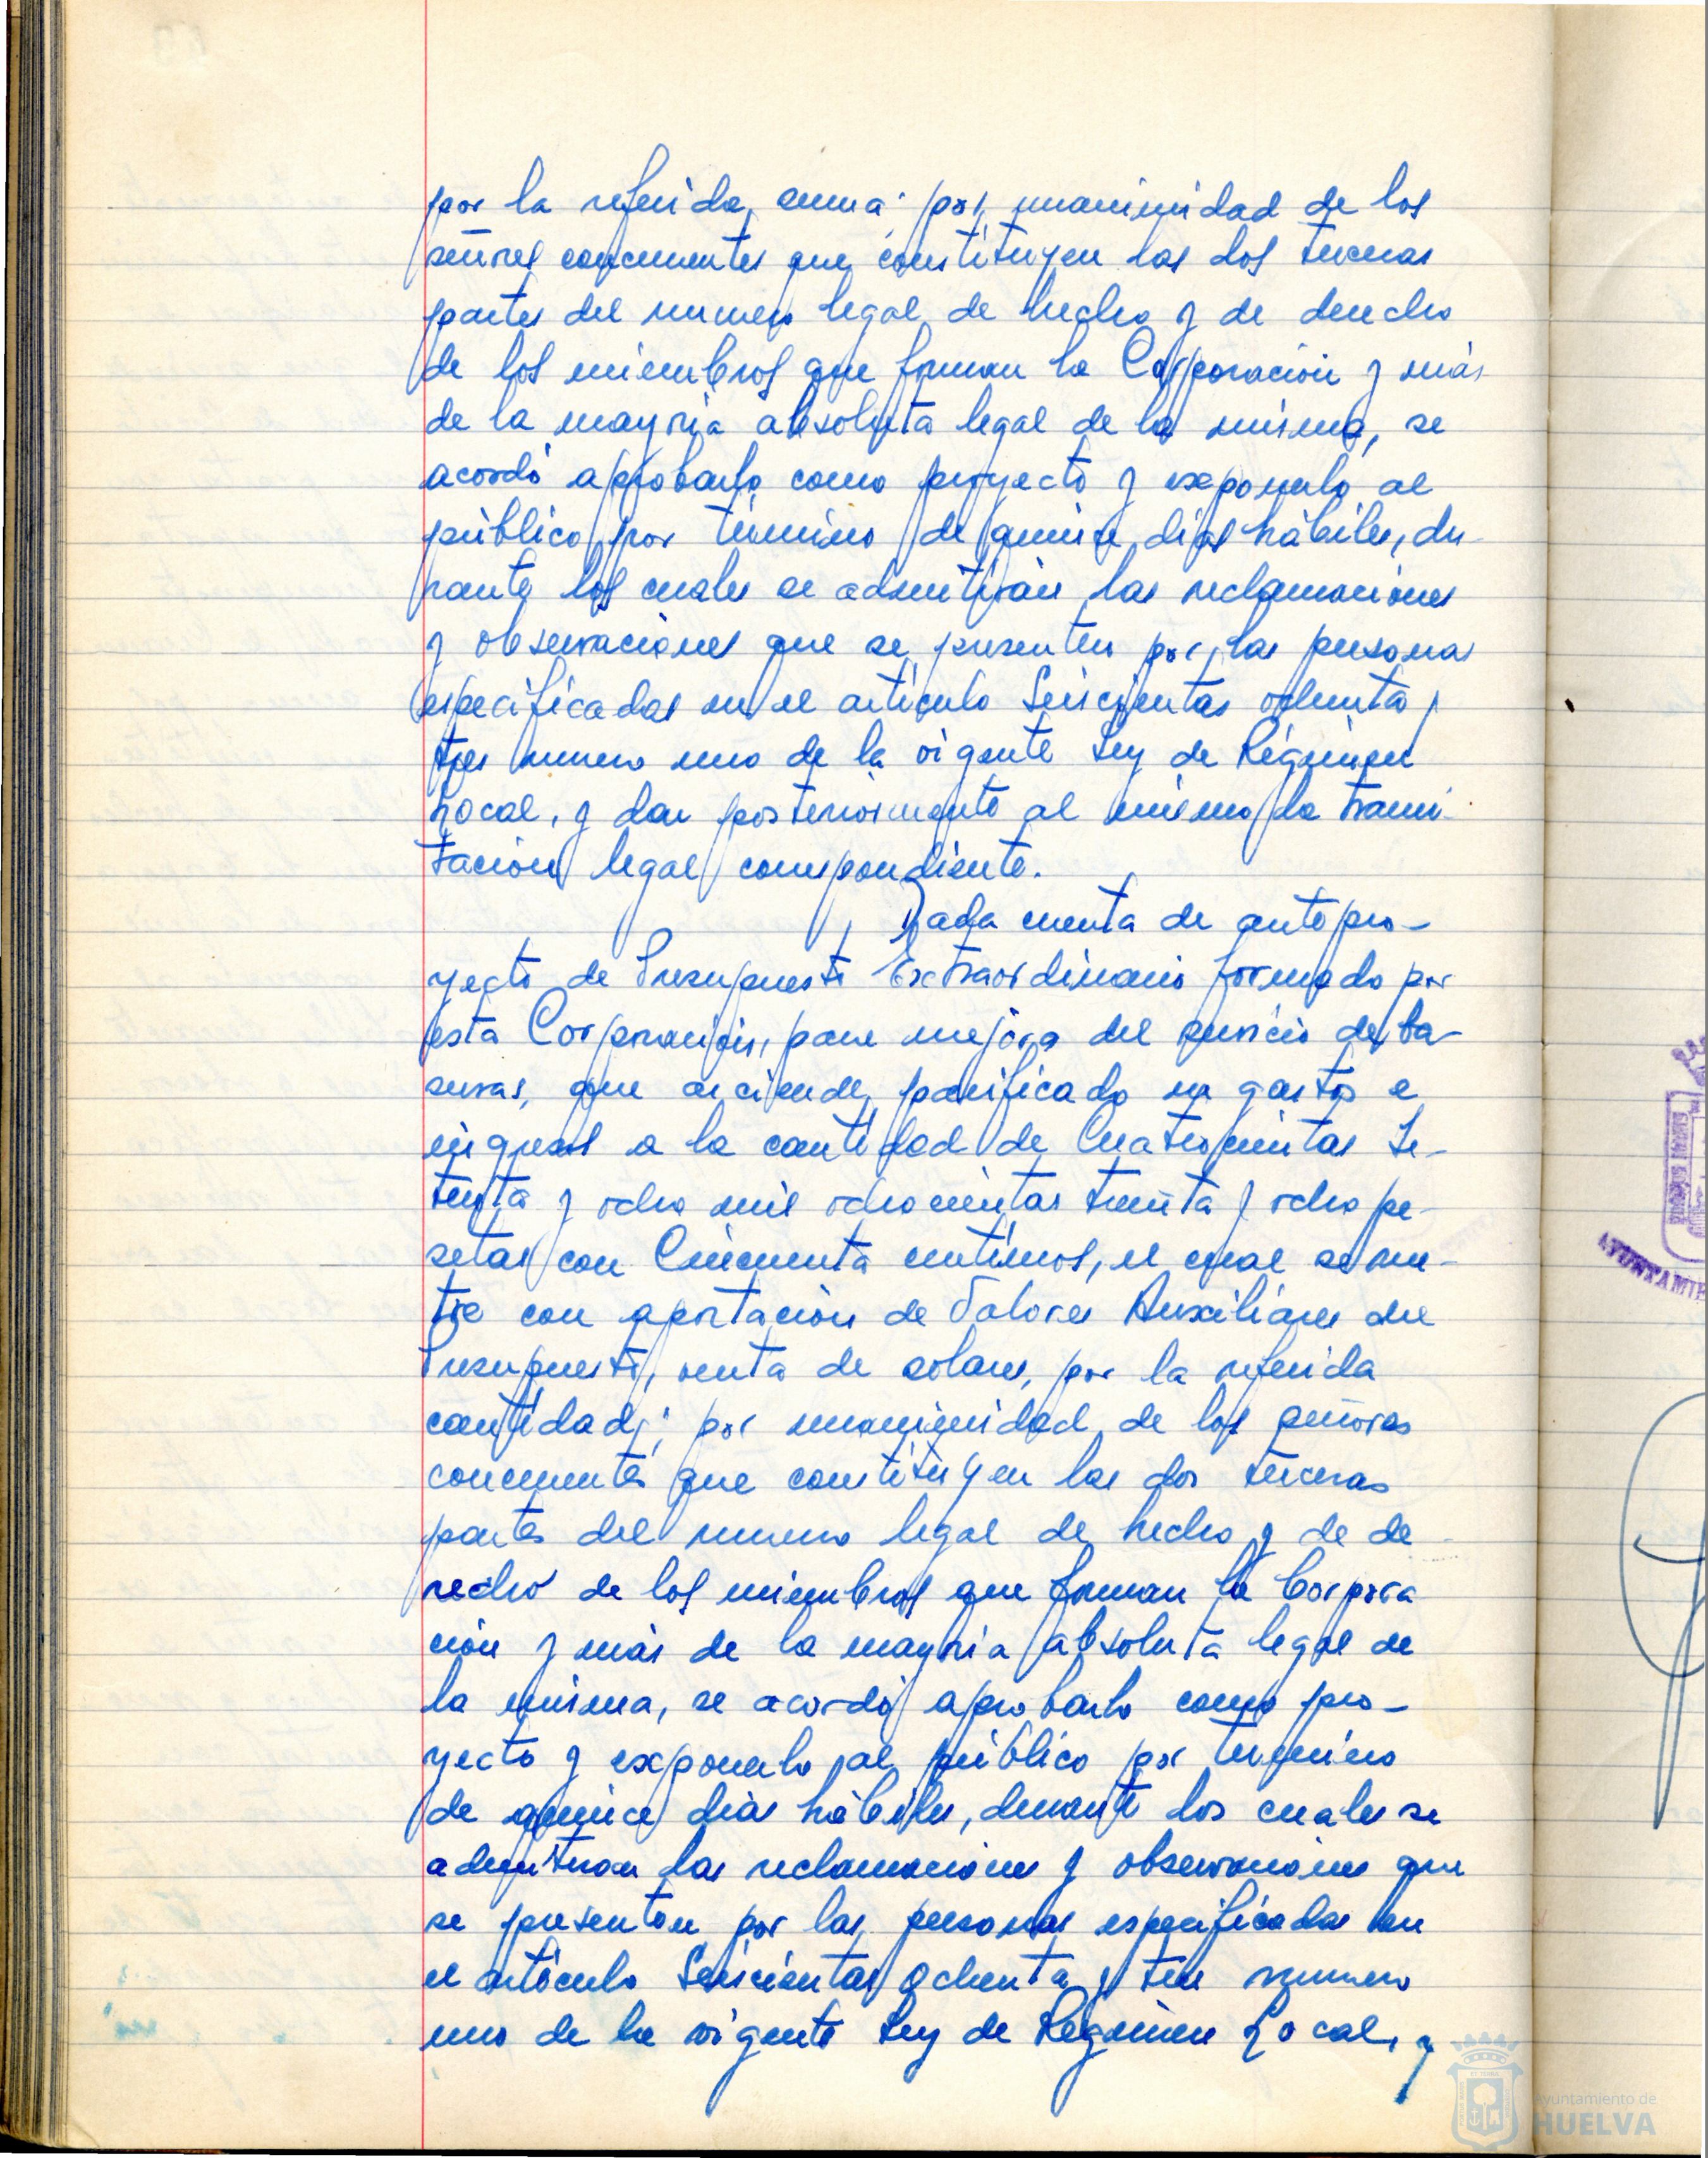 por la referida suma; por unanimidad de los
señores concurrentes que constituyen las dos terceras
partes del numero legal de hecho y de derecho
de los miembros que forman la Corporación y más
de la mayoria absoluta legal de la misma, se
acordó aprobarlo como proyecto y exponerlo al
público por término de quince dias hábiles, du-
rante los cuales se admitirán las reclamaciones
y observaciones que se presenten por las personas
especificadas en el artículo Seiscientas ochenta y
tres numero uno de la vigente Ley de Régimen
Local, y dar posteriormente al mismo la trami-
tación legal correspondiente.
Dada cuenta de antepro-
yecto de Presupuesto Extraordinario formado por
esta Corporación, para mejora del servicio de ba-
suras, que asciende, panificado en gastos e
ingresos a la cantidad de Cuatrocientas Se-
tenta y ocho mil ochocientas treinta y ocho pe-
setas con Cincuenta centimos, el cual se nu-
tre con aportación de Valores Auxiliares del
Presupuesto, venta de solares, por la referida
cantidad; por unanimidad de los señores
concurrentes que constituyen las dos terceras
partes del numero legal de hecho y de de-
recho de los miembros que forman la Corpora
ción y más de la mayoria absoluta legal de
la misma, se acordó aprobarlo como pro-
yecto y exponerlo al público por termino
de quince dias hábiles, durante los cuales se
admitiran las reclamaciones y observaciones que
se presenten por las personas especificadas en
el artículo Seiscientas ochenta y tres numero
uno de la vigente Ley de Régimen Local, y
AYUNTAMIE
Ayuntamiento de
HUELVA